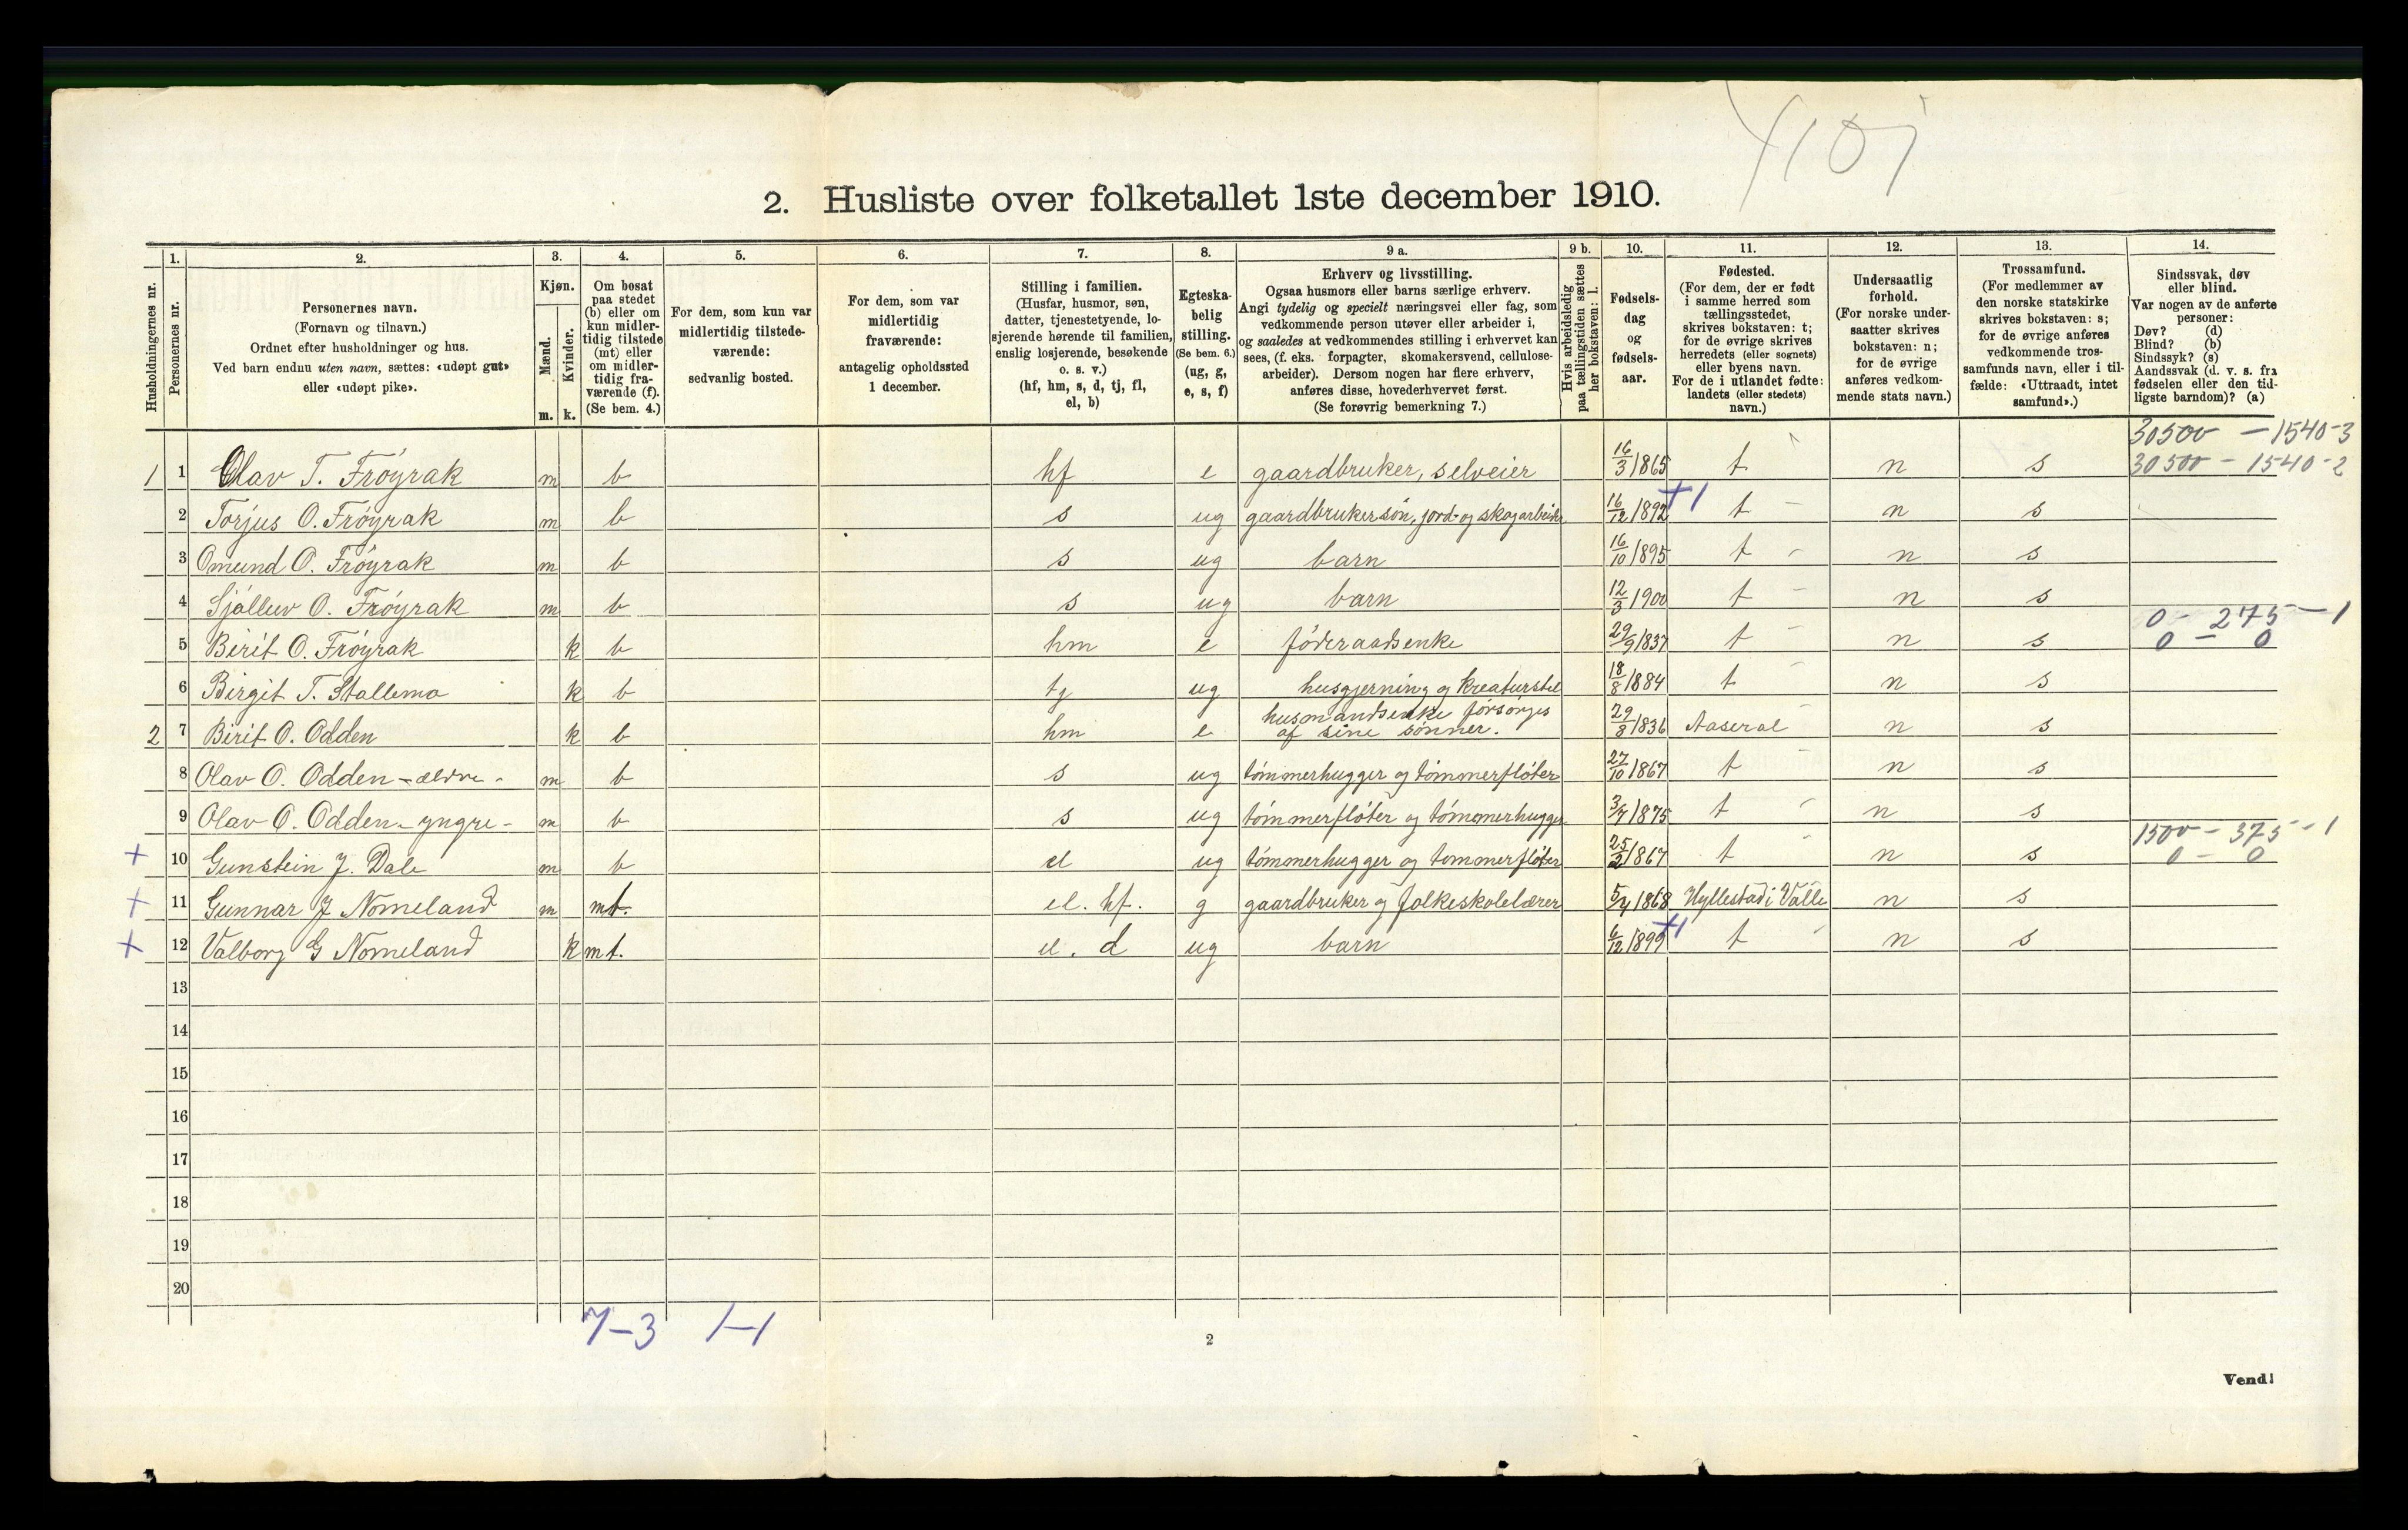 2. Husliste over folketallet 1ste december 1910.
Husholdningernes nr.
1.
Personernes nr.
2.
Personernes navn.
(Fornavn og tilnavn.)
Ordnet efter husholdninger og hus.
Ved barn endnu uten navn, sættes: «udøpt gut»
eller «udøpt pike».
3.
Kjøn.
Mænd.
Kvinder.
m. k.
4.
Om bosat
paa stedet
(b) eller om
kun midler-
tidig tilstede
(mt) eller
om midler-
tidig fra-
værende (f).
(Se bem. 4.)
5.
For dem, som kun var
midlertidig tilstede-
værende:
sedvanlig bosted.
6.
For dem, som var
midlertidig
fraværende:
antagelig opholdssted
1 december.
7.
Stilling i familien.
(Husfar, husmor, søn,
datter, tjenestetyende, lo-
sjerende hørende til familien,
enslig losjerende, besøkende
o. s. v.)
(hf, hm, s, d, tj, fl,
el, b)
8.
Egteska-
belig
stilling.
(Se bem. 6.)
(ug, g,
e, s, f)
9 a.
Erhverv og livsstilling.
Ogsaa husmors eller barns særlige erhverv.
Angi tydelig og specielt næringsvei eller fag, som
vedkommende person utøver eller arbeider i,
og saaledes at vedkommendes stilling i erhvervet kan
sees, (f. eks. forpagter, skomakersvend, cellulose-
arbeider). Dersom nogen har flere erhverv,
anføres disse, hovederhvervet først.
(Se forøvrig bemerkning 7.)
9 b.
Hvis arbeidsledig
paa tællingstiden sættes
her bokstaven: l.
10.
Fødsels-
dag
og
fødsels-
aar.
11.
Fødested.
(For dem, der er født
i samme herred som
tællingsstedet,
skrives bokstaven: t;
for de øvrige skrives
herredets (eller sognets)
eller byens navn.
For de i utlandet fødte:
landets (eller stedets)
navn.)
12.
Undersaatlig
forhold.
(For norske under-
saatter skrives
bokstaven: n;
for de øvrige
anføres vedkom-
mende stats navn.)
13.
Trossamfund.
(For medlemmer av
den norske statskirke
skrives bokstaven: s;
for de øvrige anføres
vedkommende tros-
samfunds navn, eller i til-
fælde: «Uttraadt, intet
samfund».)
14.
Sindssvak, døv
eller blind.
Var nogen av de anførte
personer:
Døv? (d)
Blind? (b)
Sindssyk? (s)
Aandssvak (d. v. s. fra
fødselen eller den tid-
ligste barndom)? (a)
30500 - 1540-3
1 1 Olav T. Frøyrak m b hf e gaardbruker, selveier 16/3 1865 t n s 30500 - 1540-2
2 Torjus O. Frøyrak m b s ug gaardbrukersøn, jord- og skogarbeider 16/12 1892 +1 t n s
3 Omund O. Frøyrak m b s ug barn 16/10 1895 t n s
4 Sjølluv O. Frøyrak m b s ug barn 12/3 1900 t n s
0 - 275 - 1
5 Birit O. Frøyrak k b hm e føderaadsenke 29/9 1837 t n s 0 - 0
6 Birgit T. Stallemo k b tj ug husgjerning og kreaturstel 18/8 1884 t n s
2 7 Birit O. Odden k b hm e husmandsenke forsørges
af sine sønner. 29/8 1836 Aaseral n s
8 Olav O. Odden - ældre - m b s ug tømmerhugger og tømmerfløter 27/10 1867 t n s
9 Olav O. Odden - yngre - m b s ug tømmerfløter og tømmerhugger 3/7 1875 t n s
1500 - 375 - 1
+ 10 Gunstein J. Dale m b el ug tømmerhugger og tømmerfløter 25/2 1867 t n s 0 - 0
+ 11 Gunnar J Nomeland m mt. el. hf. g gaardbruker og folkeskolelærer 5/4 1868 Hyllestad i Valle n s
+ 12 Valborg G Nomeland k mt. el. d ug barn 6/12 1899 +1 t n s
13
14
15
16
17
18
19
20
7-3 1-1
2
Vend!